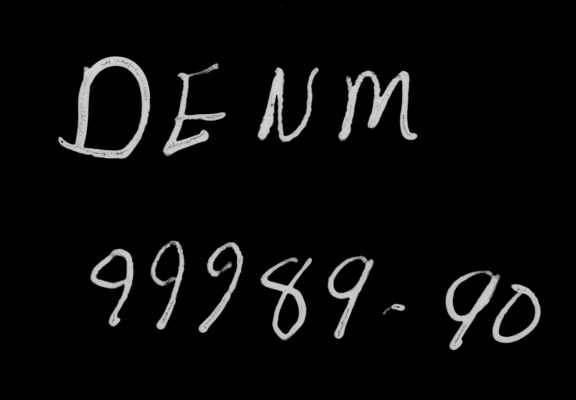 DENM
99989-90